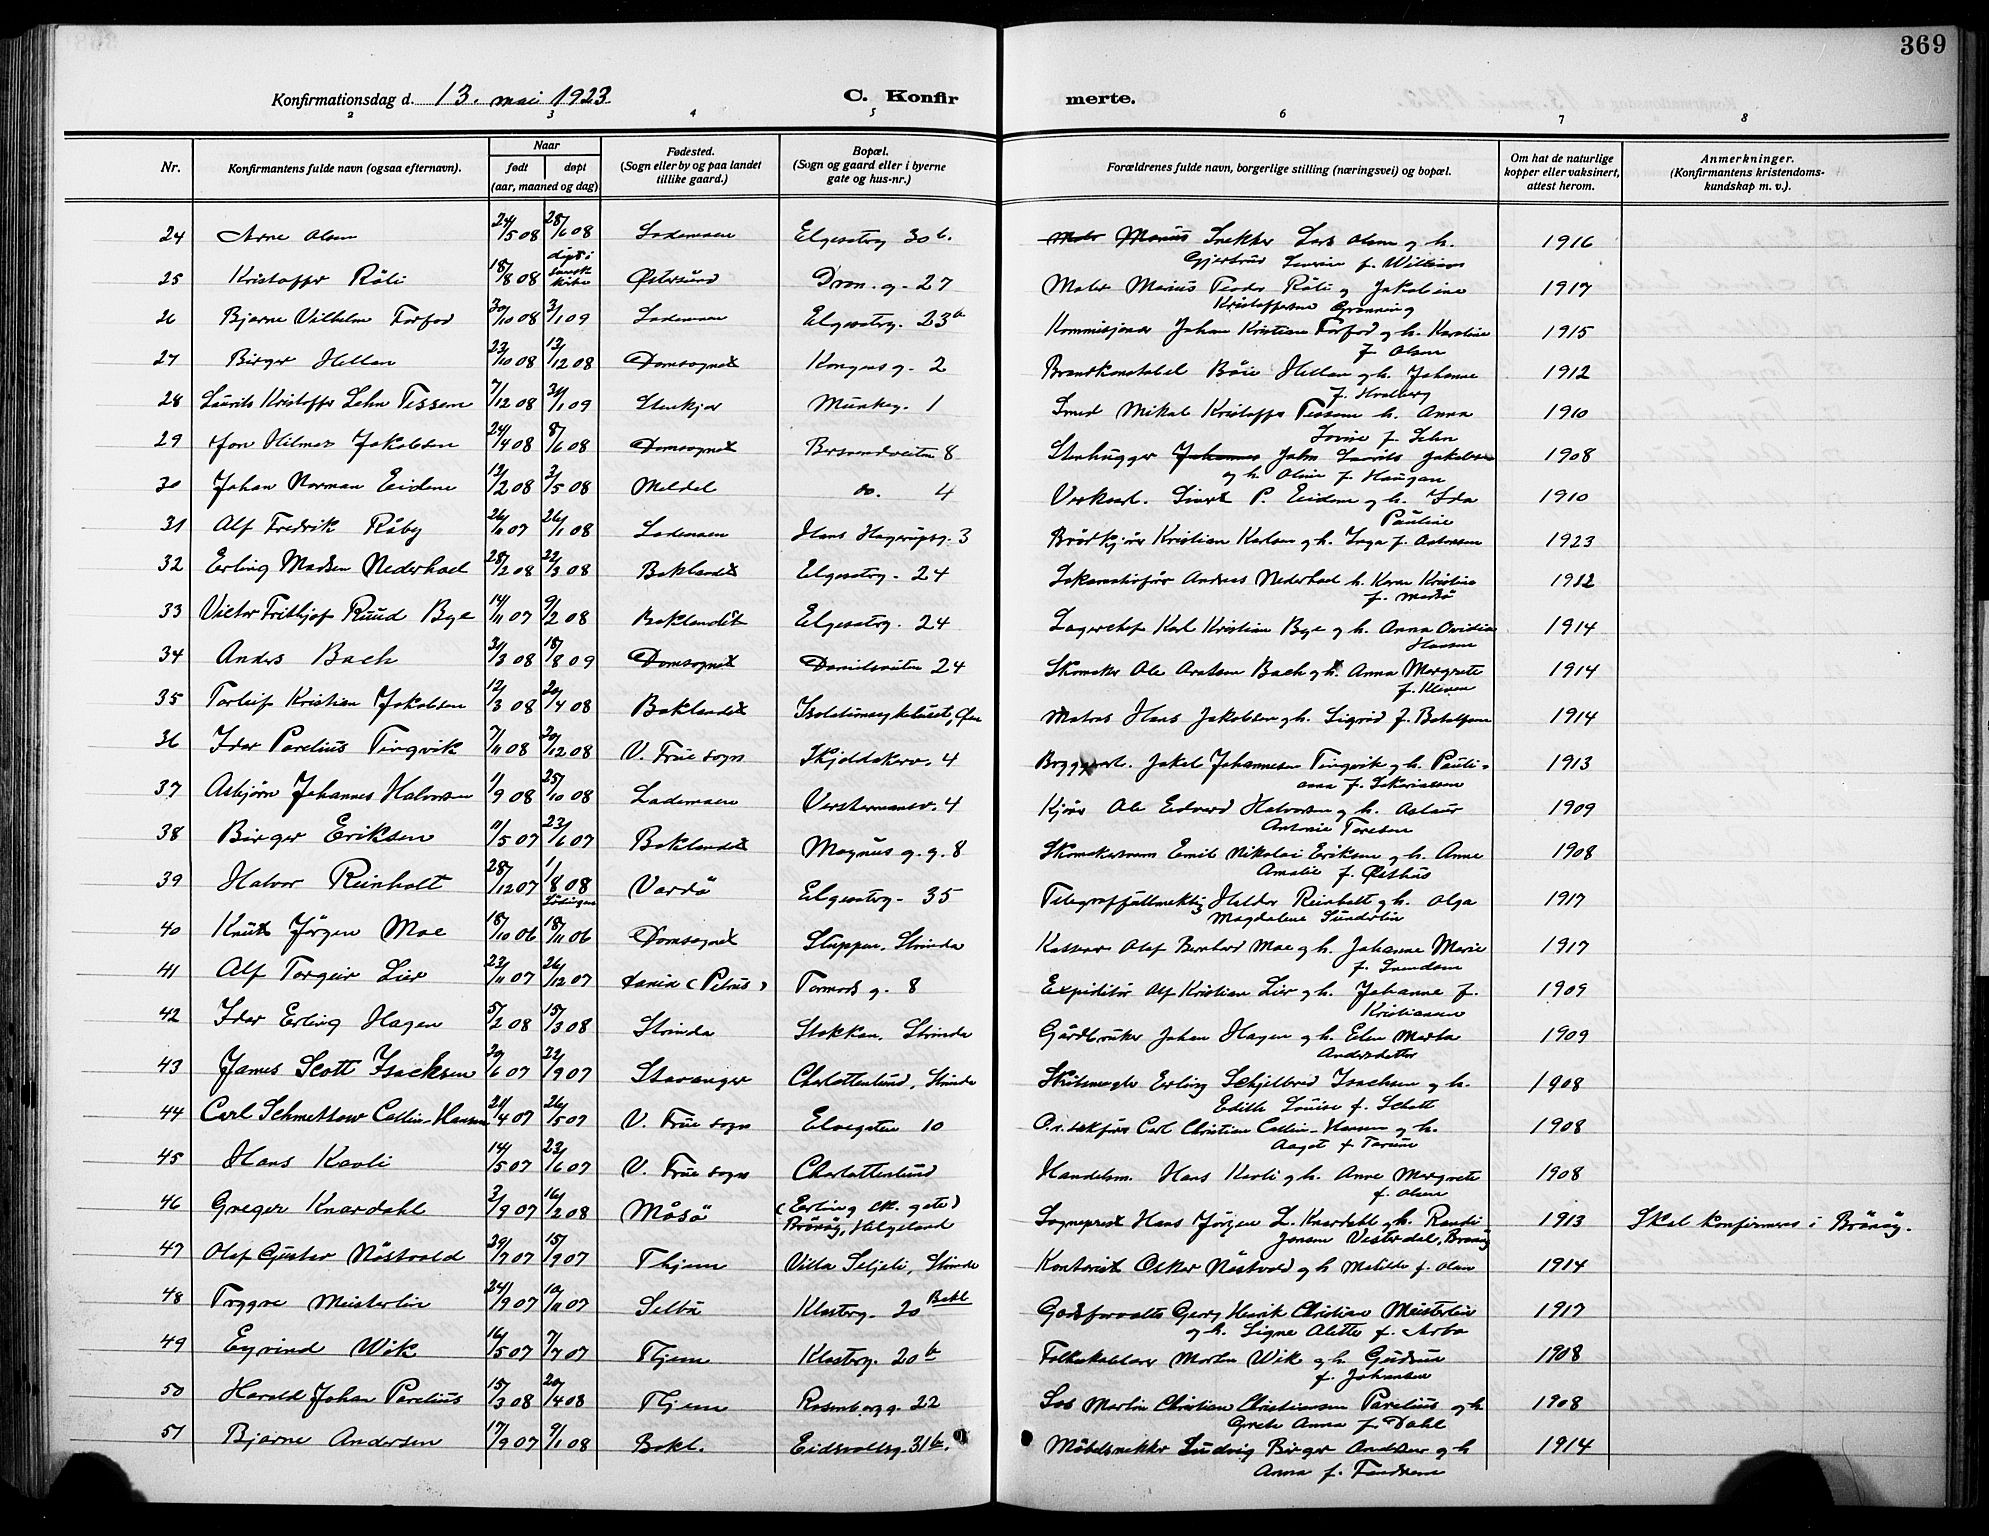 369
Konfirmationsdag d. 13. mai 1923. C. Konfirmerte.
2 3 4 5 6 7 8
Nr. Konfirmantens fulde navn (ogsaa efternavn). Naar født døpt (aar, maaned og dag) Fødested. (Sogn eller by og paa landet tillike gaard.) Bopæl. (Sogn og gaard eller i byerne gate og hus-nr.) Forældrenes fulde navn, borgerlige stilling (næringsvei) og bopæl. Om hat de naturlige kopper eller vaksinert, attest herom. Anmerkninger. (Konfirmantens kristendomskundskap m. v.).
24 Arne Olsen 24/5 08 28/6 08 Lademoen Elgesetrg 30 b. Snekker Lars Olsen g h. 1916
Gjertrud
25 Kristoffer Råli 18/8 08 døpt i svensk kirke Østersund Dron. g. 27 Maler Marius Råli g Jakobine 1917
Kristoffersen Grønning
26 Bjarne Vilhelm Forfod 30/10 08 3/1 09 Lademoen Elgesetrg. 23 b Kommisjonær Johan Kristian Forfod g h. Karoline 1915
f. Olsen
27 Birger Hellan 23/10 08 13/12 08 Domsognet Kongens g. 2 Brandkonstabel Hellan g h. Johanne 1912
28 Laurits Kristoffer Lehn Tessem 7/12 08 31/1 09 Stenkjær Munkeg. 1 Smed Mikal Kristoffer Tessem h. Anna 1910
f. Lehn
29 Jon Hilmer Jakobsen 24/4 08 8/6 08 Domsognet 8 Stenhugger Johannes John Laurits Jakobsen 1908
og h. Oline f. Haugan
30 Johan Norman Eidene 12/2 08 3/5 08 Meldal do. 4 Verksarb. Sivert P. Eidene g h. Ida 1910
Pauline
31 Alf Fredrik Råby 26/1 08 Lademoen Hans Hagerupsg. 3 Brødkjører Kristian Karlsen g h. Inga f. 1923
32 Erling Madsen Nederhoel 28/2 08 22/3 08 Baklandet Elgesetrg. 24 Lokomotivfør Andreas Nederhoel h. Karen Kristine 1912
33 Victor Frithjof Ruud Bye 14/11 07 9/2 08 Baklandet Elgesetrg. 24 Lagerchef Karl Kristian Bye g h. Anna Ovidia 1914
Hansen
34 Anders Bach 31/3 08 18/8 09 Domsognet Davidsveiten 24 Skomaker Ole Bach g h. Anna Margrete 1914
f. Kleven
35 Torleif Kristian Jakobsen 12/3 08 20/4 08 Baklandet Matros Hans Jakobsen g h. Sigrid f. 1914
36 Idar Parelius Tingvik 7/11 08 20/12 08 V. Frue sogn Skjoldakerv. 4 Bryggearb. Jakob Johannesen Tingvik g h. Pauli- 1913
37 Asbjørn Johannes Halvorsen 1/9 08 25/10 08 Lademoen 4 Kjører Ole Edvard Halvorsen g h. 1909
Antonie
38 Birger Eriksen 11/5 07 23/6 07 Baklandet Magnus g. g. 8 Emil Nikolai Eriksen g h. Anne 1908
Amalie f. Østhus
39 Halvor Reinholt 28/12 07 1/8 08 Vardø Elgesetrg. 35 Telegraffullmektig Haldor Reinholt g h. Olga 1917
Magdalene
40 Knut Jørgen Moe 18/10 06 18/11 06 Domsognet Sluppen, Strinda Kasserer Olaf Bernhard Moe g h. Johanne Marie 1917
f. Svendsen
41 Alf Torgeir Lier 23/11 07 26/12 07 (Petrus) Tormods g. 8 Expeditør Alf Kristian Lier g h. Johanne f. 1909
Kristiansen
42 Idar Erling Hagen 5/2 08 15/3 08 Strinda Stokkan, Strinda Gårdbruker Johan Hagen g h. Elen Marta 1909
Andersdatter
43 James Scott Isachsen 20/6 07 22/9 07 Stavanger Charlottenlund, Strinda Erling Schjelbred Isachsen g h. 1908
Edith Louise f. Schott
44 Carl Schmettow Collin-Hansen 21/4 07 26/5 07 V. Frue sogn Elvegaten 10 O.r.sakfører Carl Christian Collin-Hansen g h. 1908
Aagot f
45 Hans Kavli 14/5 07 23/6 07 V. Frue sogn Charlottenlund Handelsm. Hans Kavli g h. Anne Margrete 1908
f. Olsen
46 Greger Knardahl 3/9 07 16/2 08 Måsø (Erling Sk. gate) Brønøy, Helgeland Sogneprest Hans Jørgen L. Knardahl g h. Randi 1913 Skal konfirmeres i Brønøy.
Jonsen Vesterdal, Brønøy
47 Olaf Gustav Nøstvold 29/7 07 15/9 07 Ihjem Villa Seljeli, Strinda Kontorist Oskar Nøstvold g h Matilde f. Olsen 1914
48 Trygve Meisterlin 24/9 07 10/11 07 Selbu Klosterg. 20 Bakl Godsforvalter Georg Henrik Christian Meisterlin 1917
og h. Signe Alette f. Arbo
49 Eyvind Wik 16/5 07 7/7 07 Ihjem Klosterg. 20 b Folkeskolelærer Morten Wik g h Gudrun 1908
f. Johansen
50 Harald Johan Parelius 15/3 08 20/4 08 Ihjem Rosenborg g. 22 Los Martin Christian Christiansen Parelius g h. 1908
Grete Anna f. Dahl
51 Bjarne Andersen 17/9 07 9/1 08 Bakl. Eidsvollsg. 31 b. Møbelsnekker Ludvig Birger Andersen g h 1914